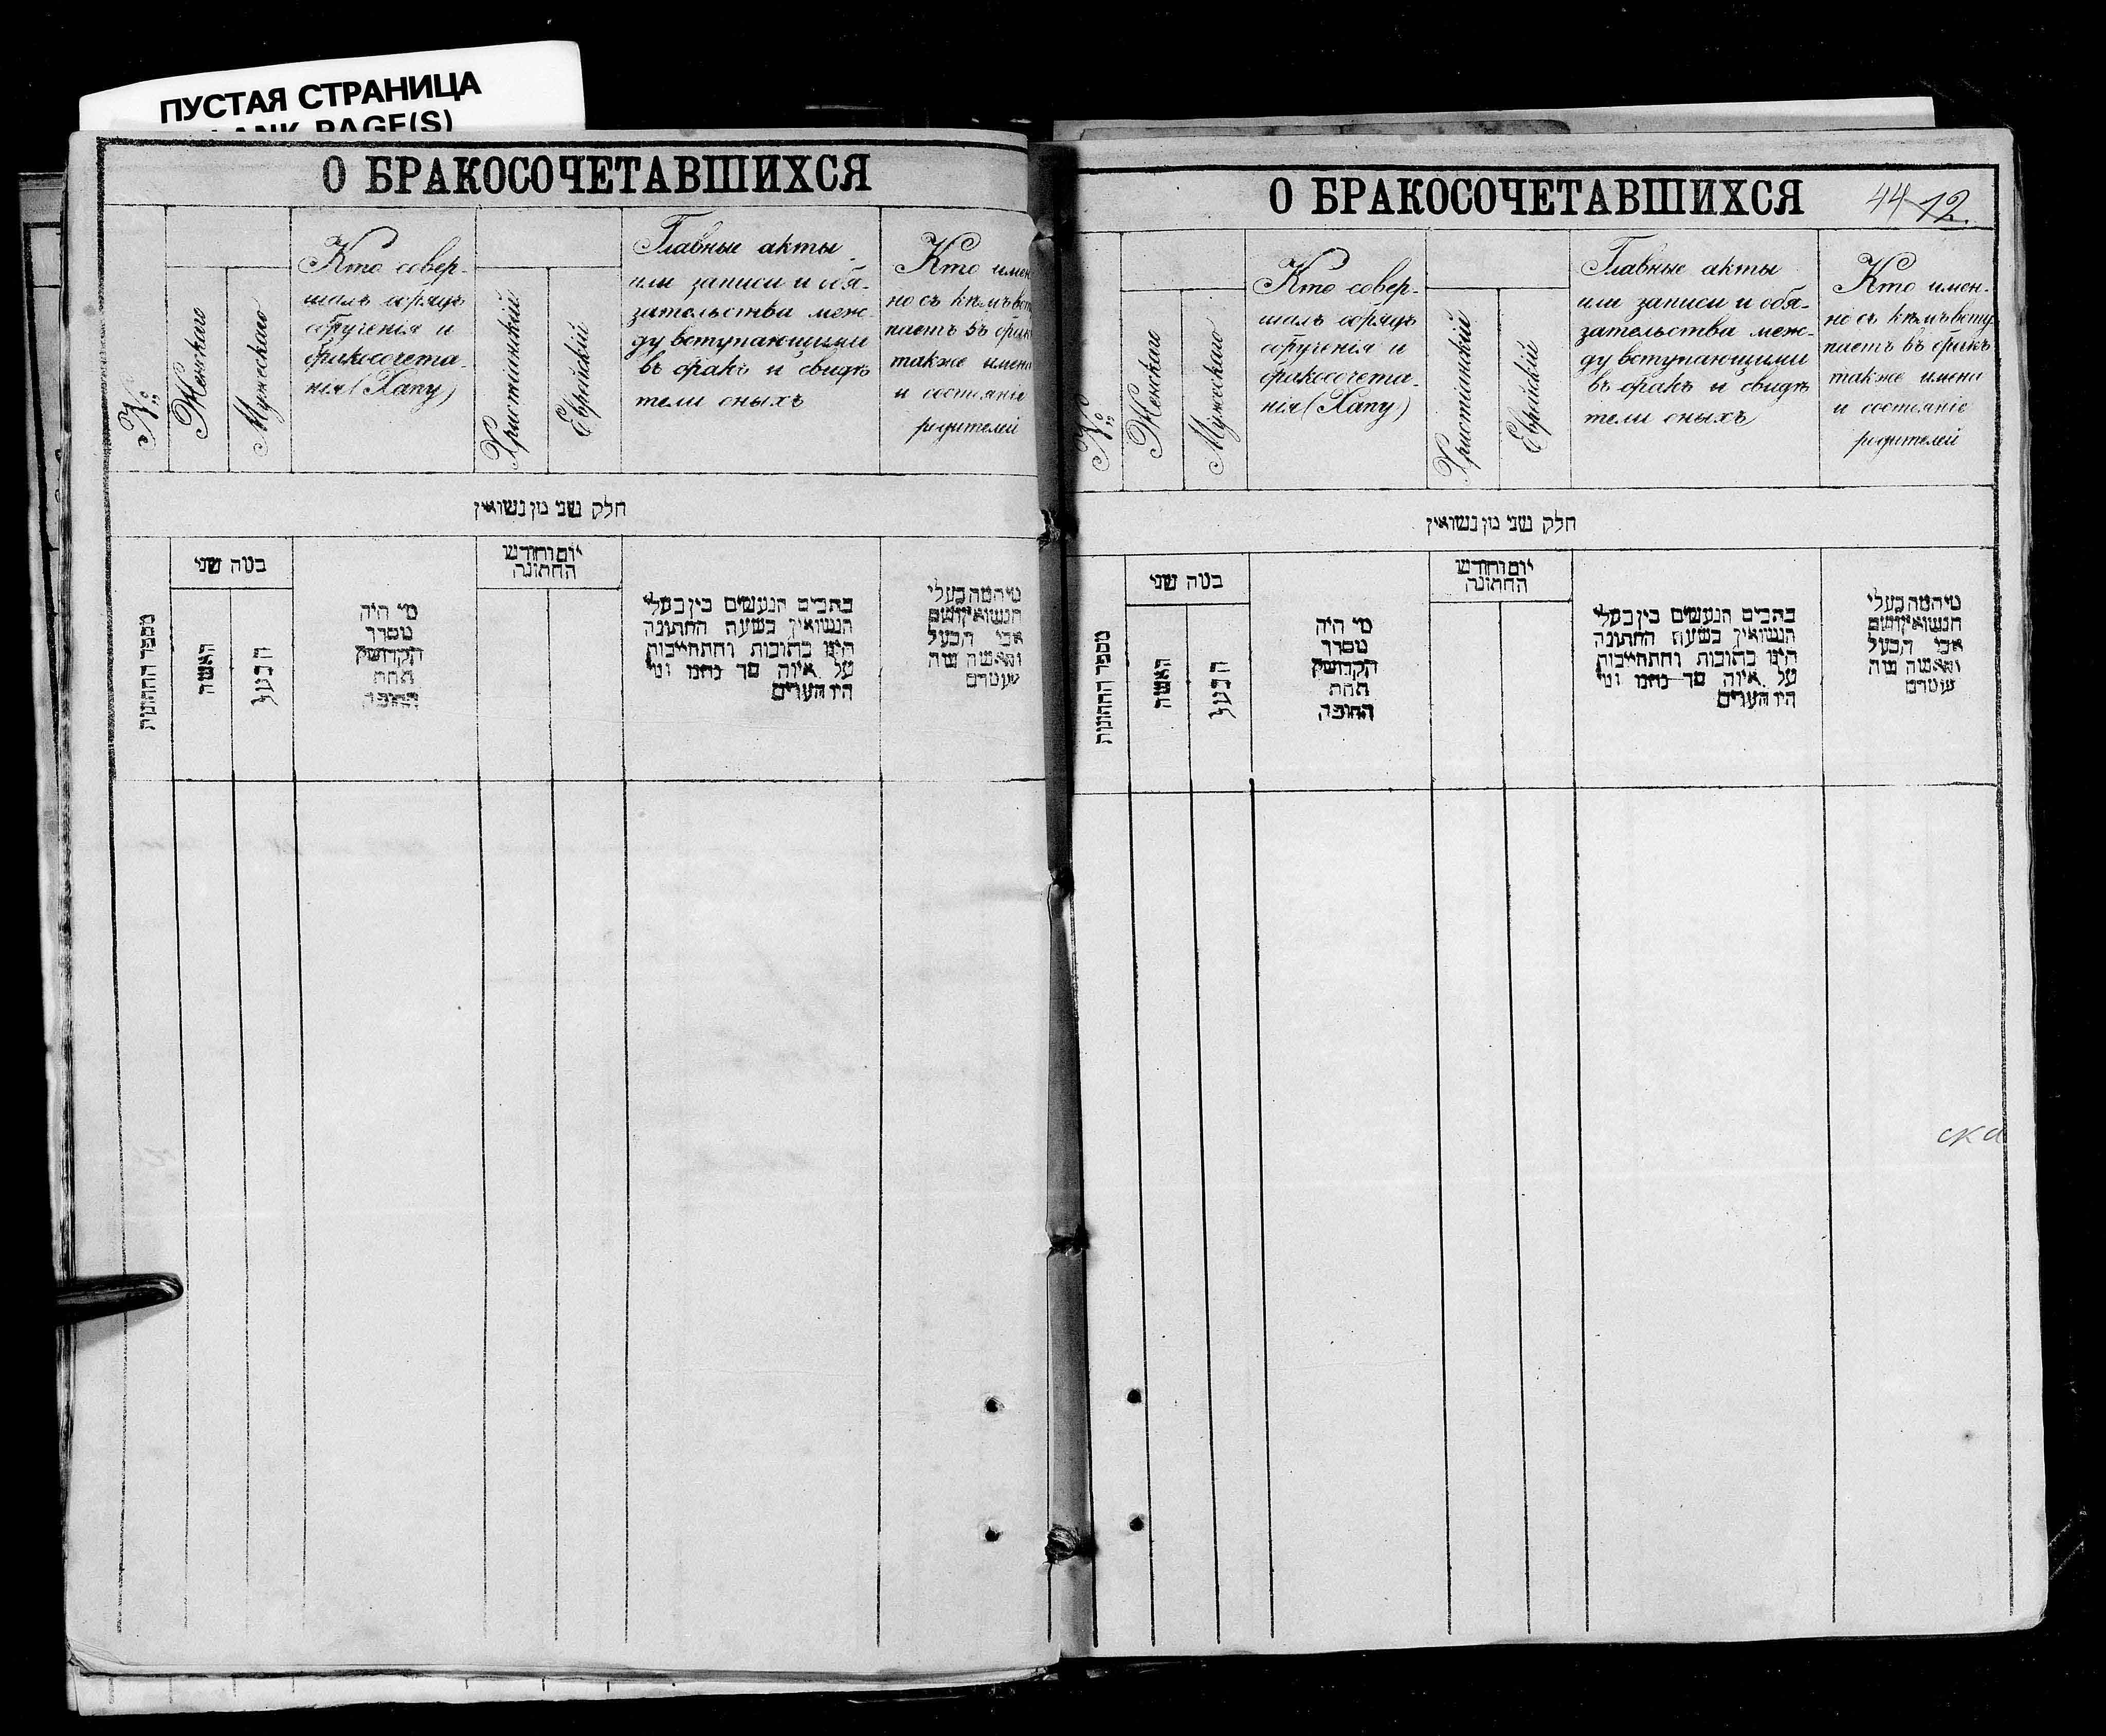 ПУСТАЯ СТРАНИЦА
BLANK PAGE(S)
О БРАКОСОЧЕТАВШИХСЯ
№
Женскаго
Мужескаго
Кто совер-
шалъ обрядъ
обрученія и
бракосочета-
нія (Хапу)
Христіанскій
Еврейскій
Главные акты
или записи и обя-
зательства меж-
ду вступающими
въ бракъ и свидѣ
тели оныхъ
Кто имен
но съ кѣмъ всту
паетъ въ бракъ
также имена
и состояніе
родителей
חלק שני מן נשואין
מספר החתונות
כמה שני
האשה
הבעל
מי היה
מסדר
הקדושין
תחת
החופה
יום וחודש
החתונה
כתבים הנעשים בין בעלי
הנשואין בשעת החתונה
היינו כתובות והתחייבות
על איזה סך נתנו ומי
היו העדים
מי המה בעלי
הנשואין ושם
אבי הבעל
והאשה ומה
מעמדם
О БРАКОСОЧЕТАВШИХСЯ
44 12.
№
Женскаго
Мужескаго
Кто совер-
шалъ обрядъ
обрученія и
бракосочета-
нія (Хапу)
Христіанскій
Еврейскій
Главные акты
или записи и обя-
зательства меж-
ду вступающими
въ бракъ и свидѣ
тели оныхъ
Кто имен-
но съ кѣмъ всту
паетъ въ бракъ
также имена
и состояніе
родителей
חלק שני מן נשואין
מספר החתונות
כמה שני
האשה
הבעל
מי היה
מסדר
הקדושין
תחת
החופה
יום וחודש
החתונה
כתבים הנעשים בין בעלי
הנשואין בשעת החתונה
היינו כתובות והתחייבות
על איזה סך נתנו ומי
היו העדים
מי המה בעלי
הנשואין ושם
אבי הבעל
והאשה ומה
מעמדם
ска